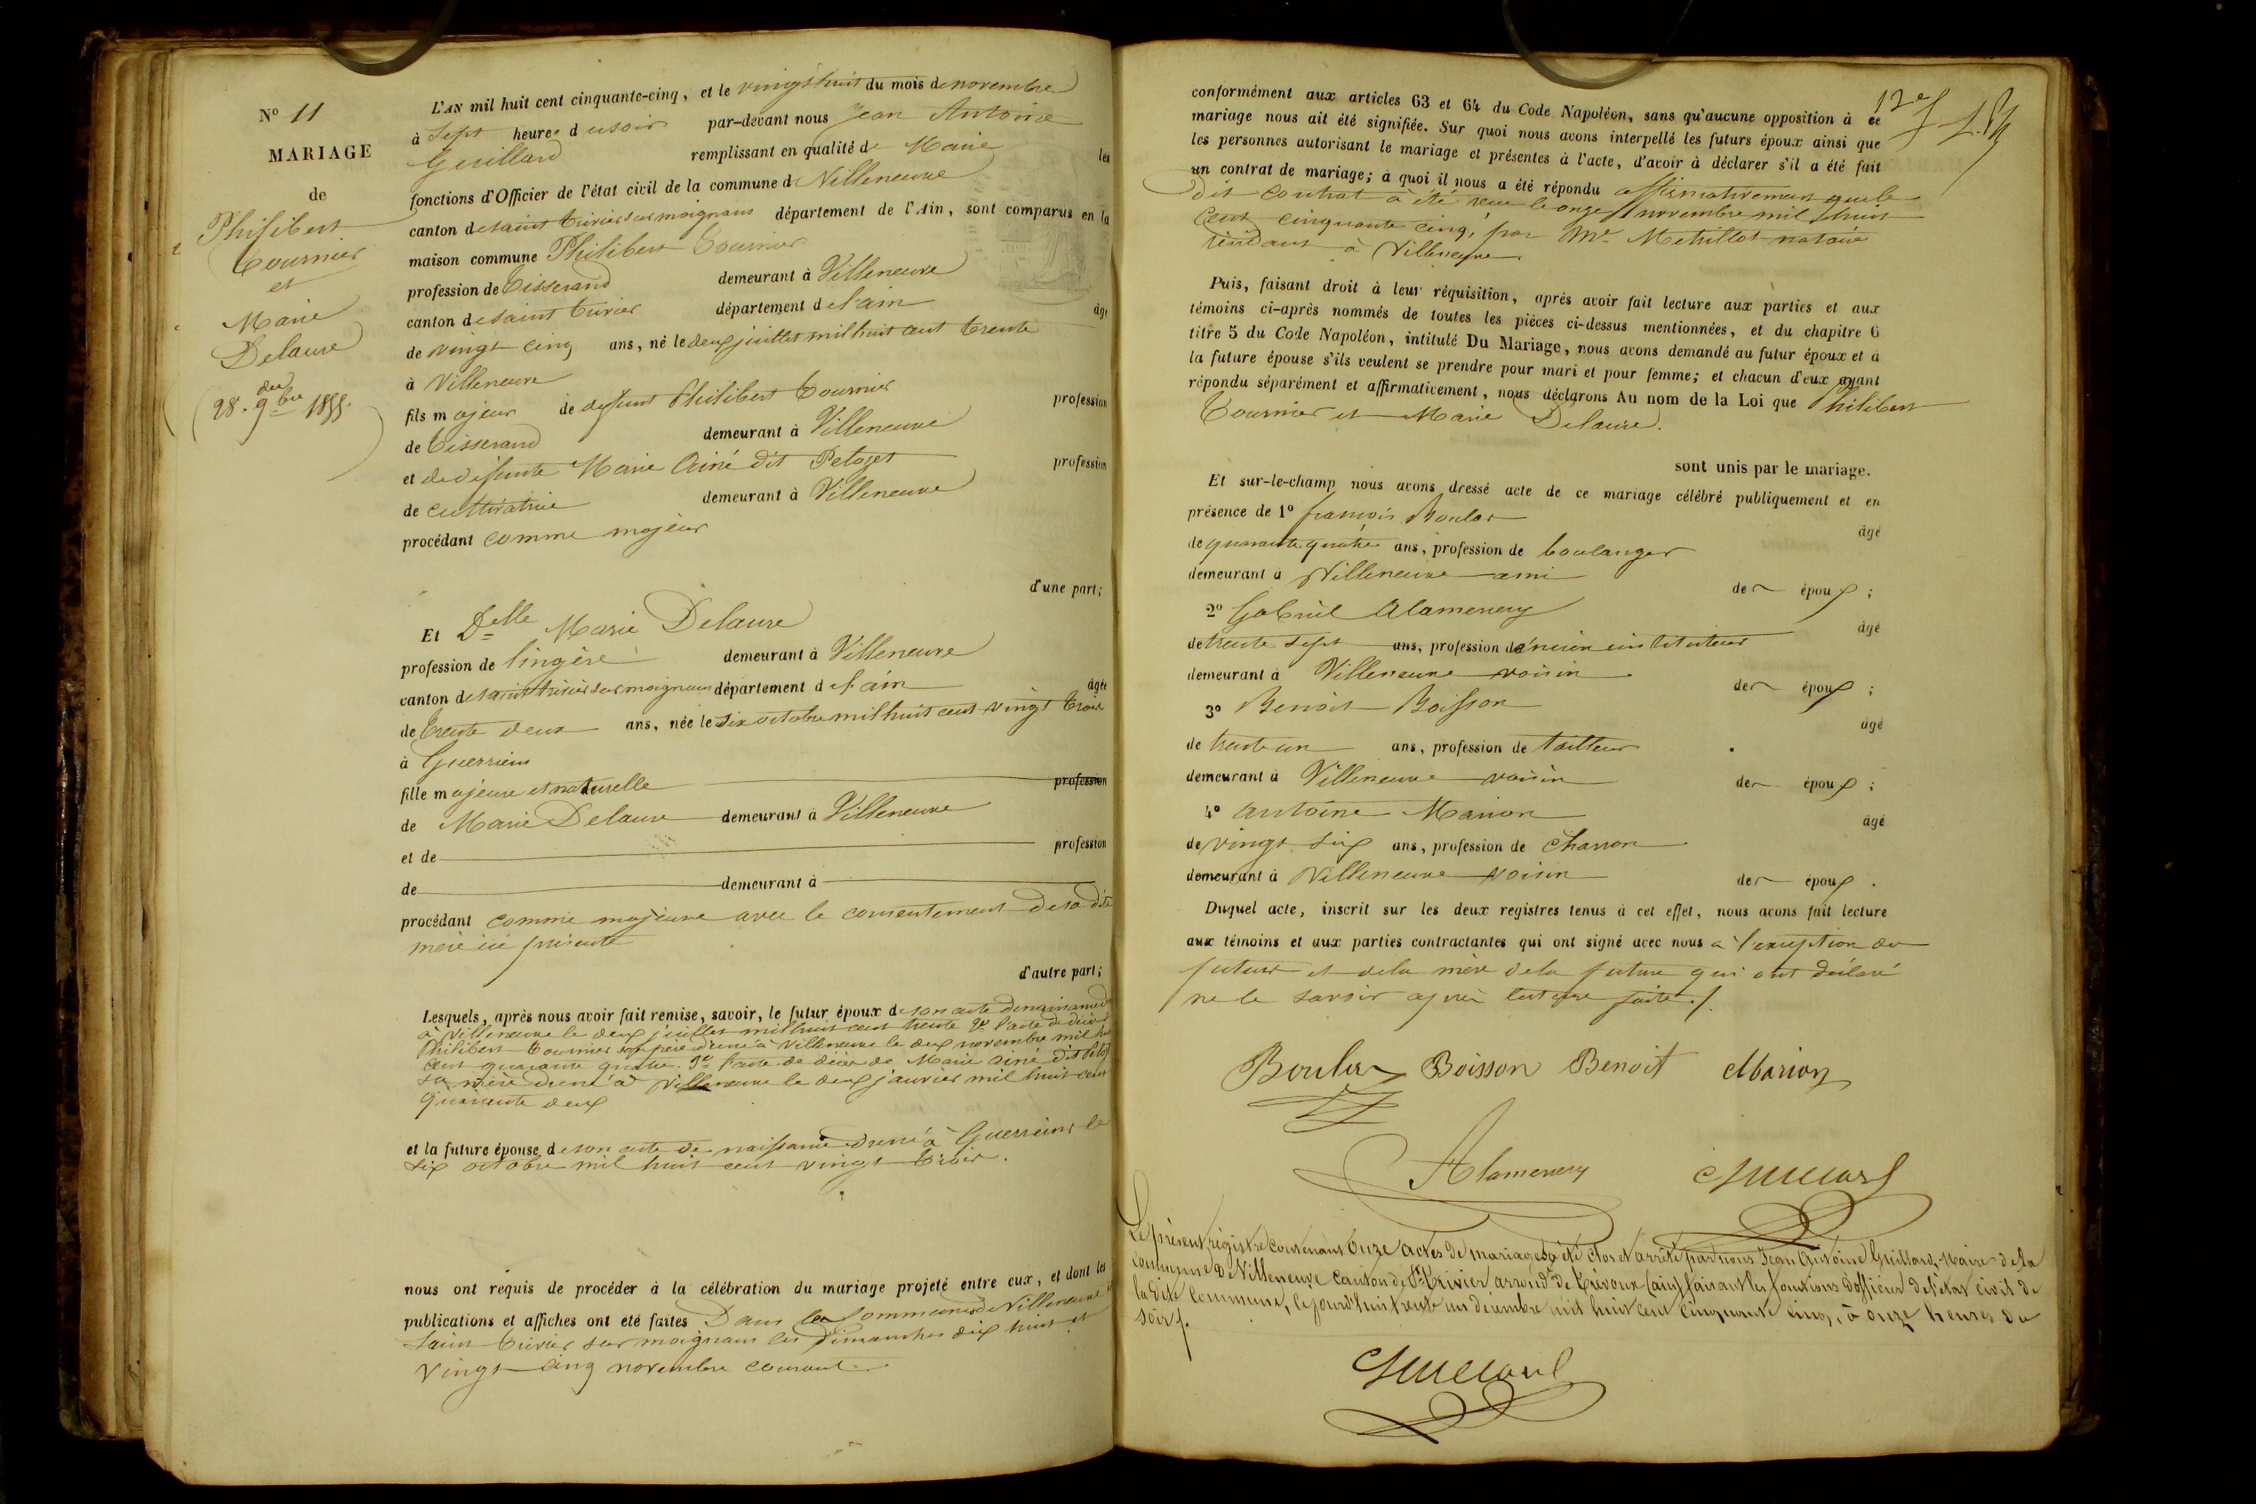 N° 11
MARIAGE
de
Philibert
Tournier
et
Marie
Delaure
du
28. 9bre 1855.
L'AN mil huit cent cinquante-cinq, et le vingt huit du mois de novembre
à Sept heures du soir par-devant nous Jean Antoine
Guillard remplissant en qualité de Maire les
fonctions d'Officier de l'état civil de la commune de Villeneuve
canton de saint Trivier sur moignans département de l'Ain, sont comparus en la
maison commune Philibert Tournier
profession de Tisserand demeurant à Villeneuve
canton de saint Trivier département de l'ain âgé
de vingt cinq ans, né le deux juillet mil huit cent trente
à Villeneuve
fils majeur de defunt Philibert Tournier profession
de Tisserand demeurant à Villeneuve
et de défunte Marie Ainé dit Petozet profession
de cultivatrice demeurant à Villeneuve
procédant comme majeur
d'une part;
Et Delle Marie Delaure
profession de lingère demeurant à Villeneuve
canton de saint trivier sur moignans département de l'ain âgée
de Trente deux ans, née le six octobre mil huit cent vingt trois
à Guerriens
fille majeure et naturelle profession
de Marie Delaure demeurant à Villeneuve
et de profession
de demeurant à
procédant comme majeure avec le consentement de sa dite
mère ici présente
d'autre part;
Lesquels, après nous avoir fait remise, savoir, le futur époux de son acte de naissance
à Villeneuve le deux juillet mil huit cent trente 2° l'acte de décès
Philibert Tournier son père dressé à Villeneuve le deux novembre mil huit
cent quarante quatre. 3° l'acte de décès de Marie Ainé dit
sa mère dressé à Villeneuve le deux janvier mil huit cent
quarante deux
et la future épouse de son acte de naissance dressé à Guerriens le
six octobre mil huit cent vingt trois.
nous ont requis de procéder à la célébration du mariage projeté entre eux, et dont les
publications et affiches ont été faites Dans les Communes de Villeneuve
saint Trivier sur moignans les dimanches dix huit et
vingt cinq novembre courant
12e
conformément aux articles 63 et 64 du Code Napoléon, sans qu'aucune opposition à ce
mariage nous ait été signifiée. Sur quoi nous avons interpellé les futurs époux ainsi que
les personnes autorisant le mariage et présentes à l'acte, d'avoir à déclarer s'il a été fait
un contrat de mariage; à quoi il nous a été répondu affirmativement que le
dit contrat à été reçu le onze novembre mil huit
cent cinquante cinq, par Me Metrillot notaire
résidant à Villeneuve
Puis, faisant droit à leur réquisition, après avoir fait lecture aux parties et aux
témoins ci-après nommés de toutes les pièces ci-dessus mentionnées, et du chapitre 6
titre 5 du Code Napoléon, intitulé Du Mariage, nous avons demandé au futur époux et à
la future épouse s'ils veulent se prendre pour mari et pour femme; et chacun d'eux ayant
répondu séparément et affirmativement, nous déclarons Au nom de la Loi que Philibert
Tournier et Marie Delaure.
sont unis par le mariage.
Et sur-le-champ nous avons dressé acte de ce mariage célébré publiquement et en
présence de 1° françois Boular âgé
de quarante quatre ans, profession de boulanger
demeurant à Villeneuve ami des époux ;
2° Gabriel Alamercery âgé
de trente sept ans, profession de ancien instituteur
demeurant à Villeneuve voisin des époux ;
3° Benoit Boisson âgé
de trente un ans, profession de tailleur
demeurant à Villeneuve voisin des époux ;
4° antoine Marion âgé
de vingt six ans, profession de charron
demeurant à Villeneuve voisin des époux .
Duquel acte, inscrit sur les deux registres tenus à cet effet, nous avons fait lecture
aux témoins et aux parties contractantes qui ont signé avec nous à l'exception du
futur et de la mère de la future qui ont déclaré
ne le savoir après lecture faite./.
Boular Boisson Benoit Marion
Alamercery Guillard
Le présent régistre contenant Onze actes de mariages à été clos et arrêté par nous Jean Antoine Guillard, Maire de la
commune de Villeneuve Canton de St Trivier arrondt de Trévoux (ain) faisant les fonctions d'officier de l'état civil de
la dite Commune, le jourd'hui trente un décembre mil huit cent cinquante cinq, à onze heures du
soir /.
Guillard